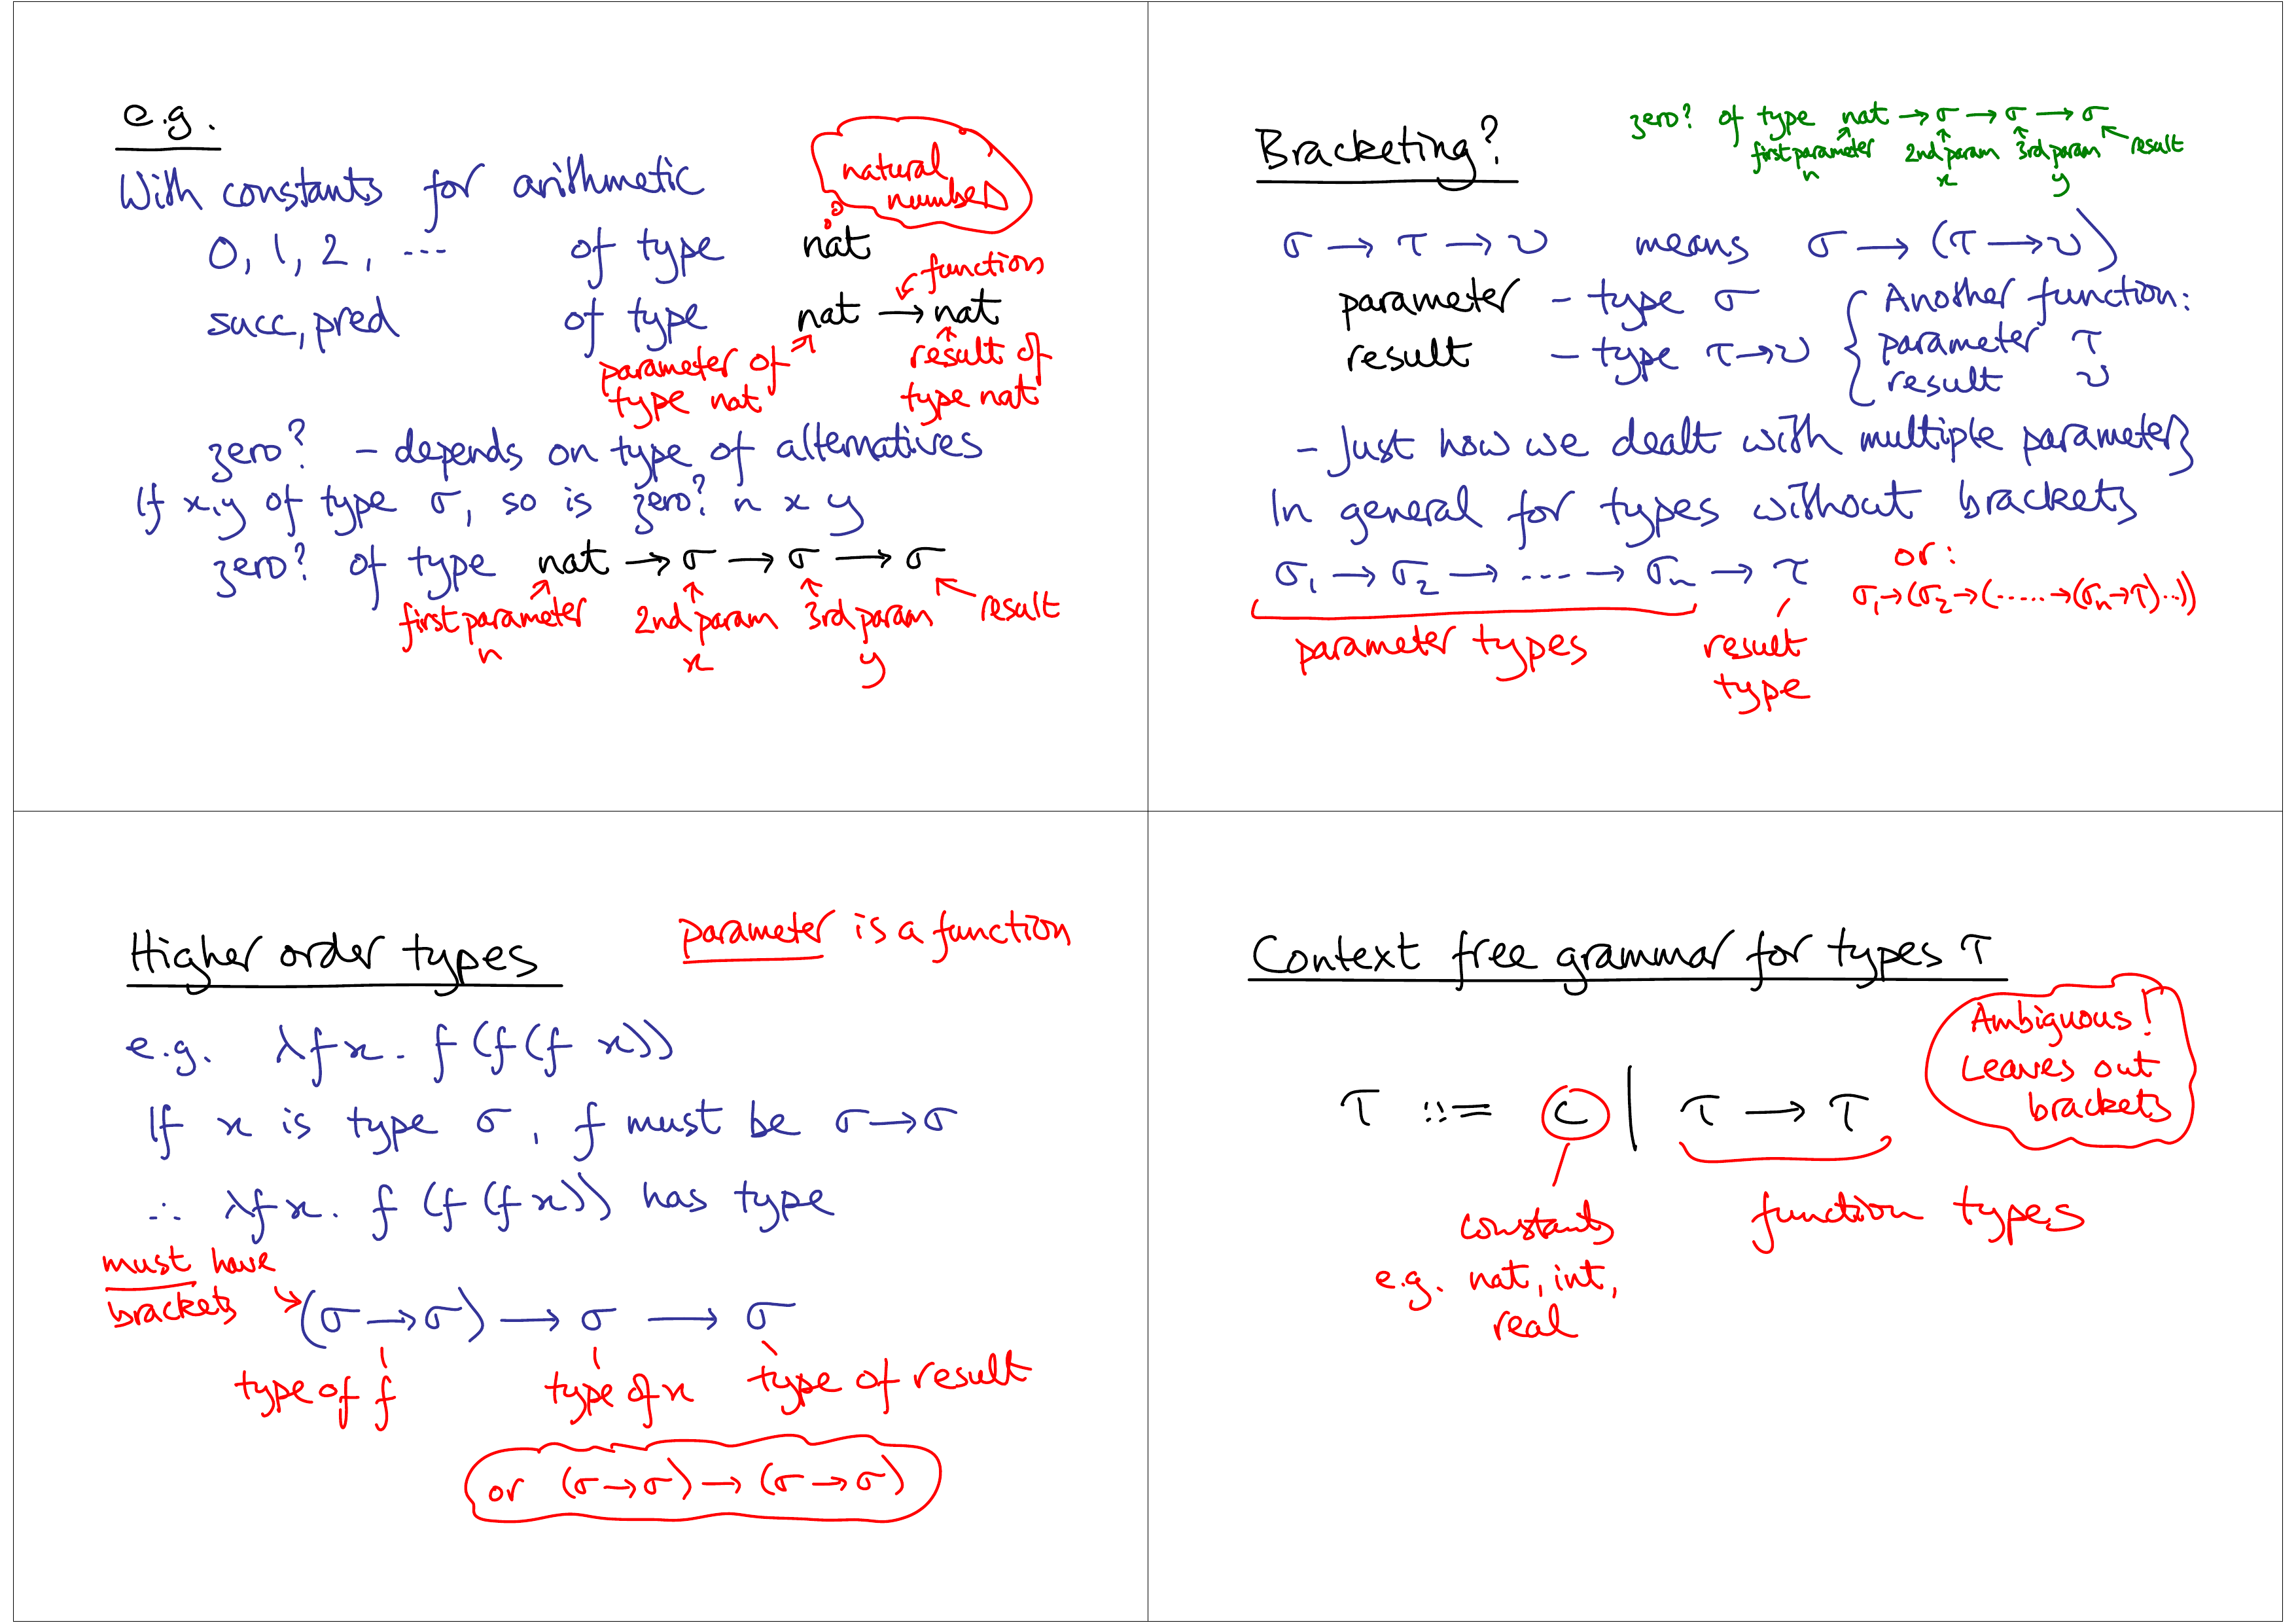 e.g.
With constants for arithmetic
natural
numbers
0, 1, 2, ... of type nat
function
succ, pred of type nat → nat
parameter of
type nat
result of
type nat
zero? - depends on type of alternatives
If x,y of type σ, so is zero? n x y
zero? of type nat → σ → σ → σ
first parameter 2nd param 3rd param result
n x y
Bracketing?
zero? of type nat → σ → σ → σ
first parameter 2nd param 3rd param result
n x y
σ → τ → υ means σ → (τ → υ)
parameter - type σ
result - type τ → υ
{ Another function:
parameter τ
result υ
- Just how we dealt with multiple parameters
In general for types without brackets
σ₁ → σ₂ → ... → σₙ → τ
parameter types
result
type
or:
σ₁→(σ₂→(.....→(σₙ→τ)..))
Higher order types
parameter is a function
e.g. λfx. f(f(f x))
If x is type σ, f must be σ→σ
∴ λfx. f(f(fx)) has type
must have
brackets
(σ→σ) → σ → σ
type of f type of x type of result
or (σ→σ) → (σ→σ)
Context free grammar for types τ
Ambiguous!
Leaves out
brackets
τ ::= c | τ → τ
constants
e.g. nat, int,
real
function types